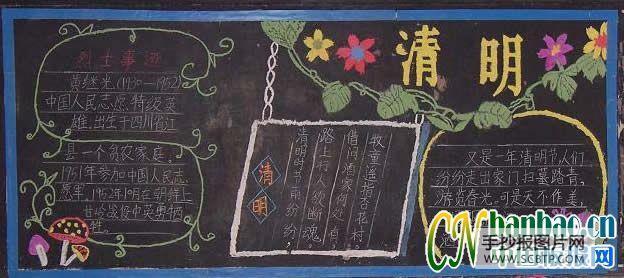 清明
烈士事迹
黄继光.(1930—1952)
中国人民志愿特级英
雄.出生于四川省江
县一个贫农家庭.
1951年参加中国人民志
愿军.1952年10月在朝鲜上
甘岭战役中英勇牺
牲.
清明
清明时节雨纷纷,
路上行人欲断魂
借问酒家何处有,
牧童遥指杏花村
又是一年清明节,人们
纷纷走出家门扫墓踏青,
游览春光,可是天不作美,
CNbanbao.cn
手抄报图片网
WWW.SCBTP.COM